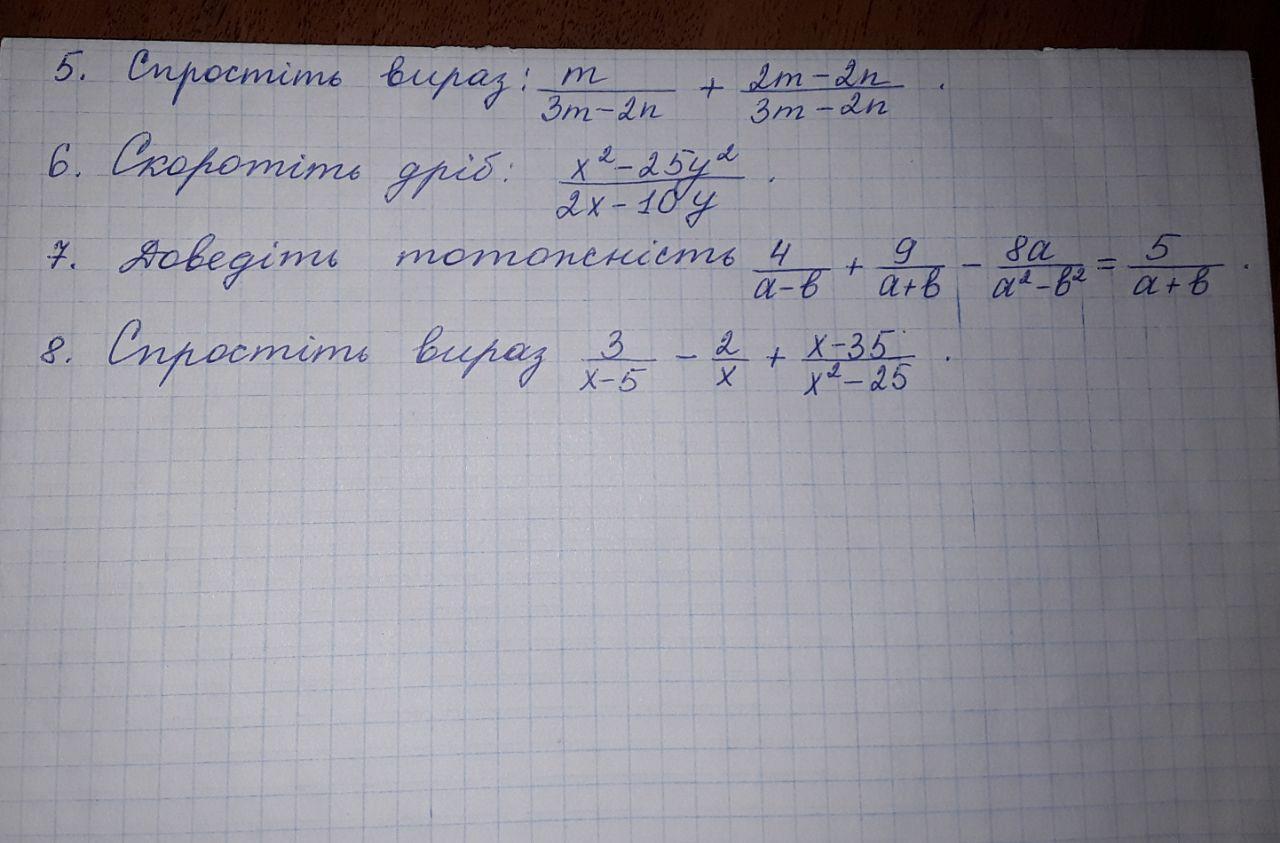 5. Спростіть вираз: m/(3m-2n) + (2m-2n)/(3m-2n).
6. Скоротіть дріб: (x²-25y²)/(2x-10y).
7. Доведіть тотожність 4/(a-b) + 9/(a+b) - 8a/(a²-b²) = 5/(a+b).
8. Спростіть вираз 3/(x-5) - 2/x + (x-35)/(x²-25).